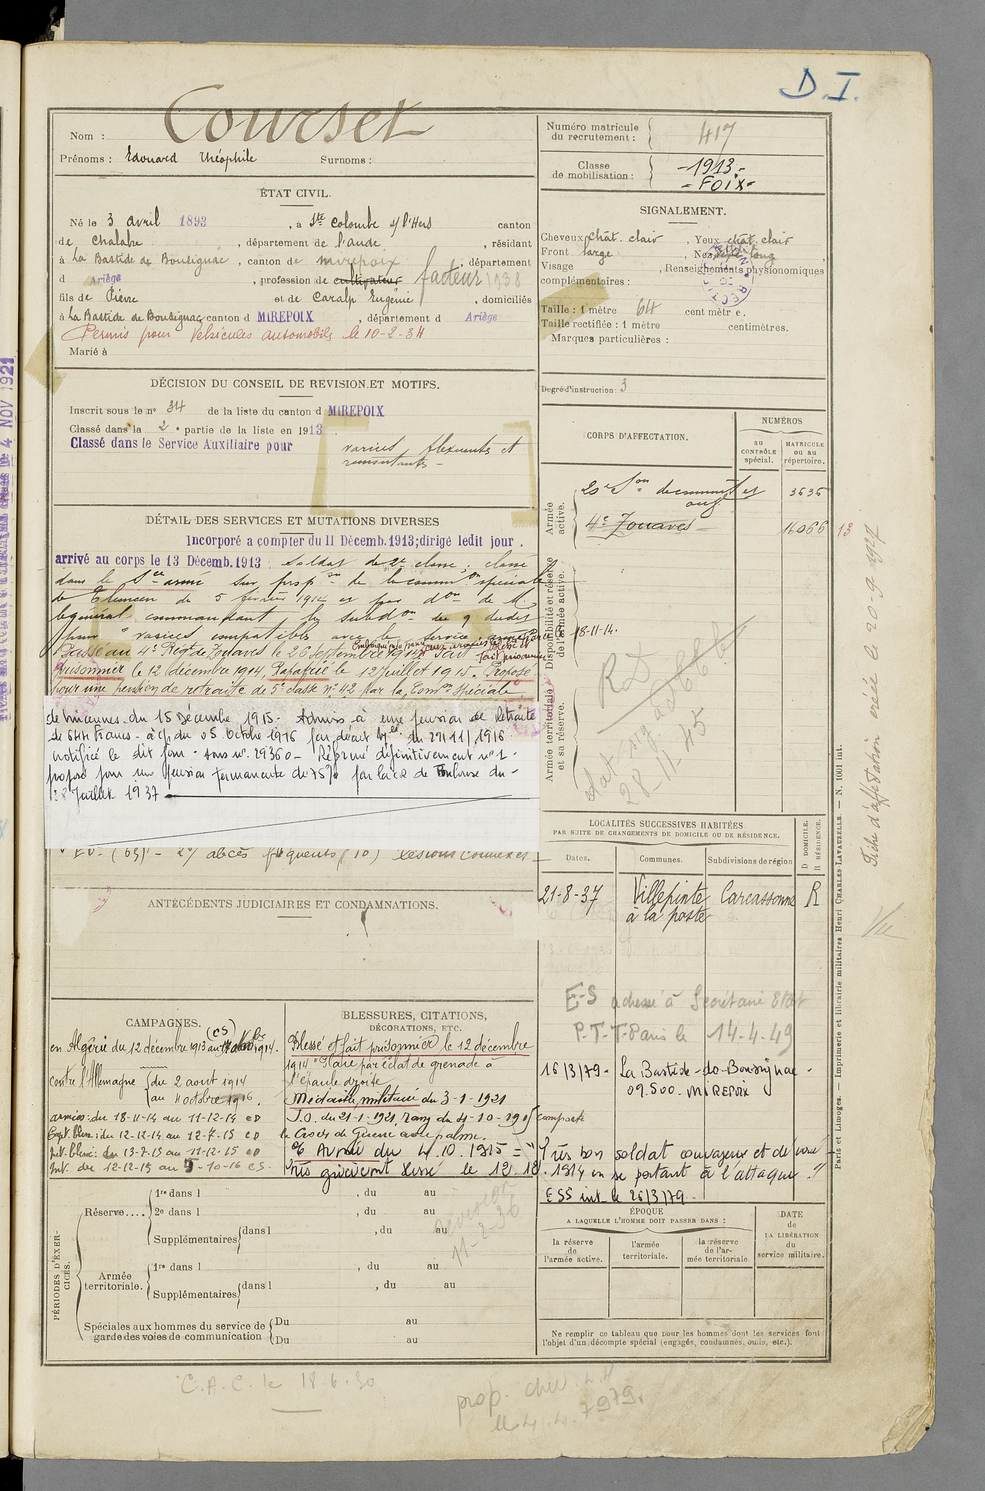 D.I.
Nom : Courset
Prénoms : Edouard Théophile Surnoms :
Numéro matricule du recrutement : 417
Classe de mobilisation : -1913.-
- FOIX -
ÉTAT CIVIL.
Né le 3 avril 1893, à Ste Colombe s/ l'Hers canton
de Chalabre, département de l'Aude, résidant
à La Bastide de Bousignac, canton de Mirepoix, département
d Ariège, profession de cultivateur facteur 1938
fils de Pierre et de Caralp Eugénie, domiciliés
à La Bastide de Bousignac canton d MIREPOIX, département d Ariège
Permis pour véhicules automobiles le 10-2-34
Marié à
SIGNALEMENT.
Cheveux chât. clair, Yeux chât. clair
Front large, Nez long
Visage , Renseignements physionomiques
complémentaires :
Taille : 1 mètre 64 centimètre.
Taille rectifiée : 1 mètre centimètres.
Marques particulières :
Degré d'instruction : 3
DÉCISION DU CONSEIL DE REVISION ET MOTIFS.
Inscrit sous le n° 34 de la liste du canton d MIREPOIX
Classé dans la 2e partie de la liste en 1913
Classé dans le Service Auxiliaire pour varices
CORPS D'AFFECTATION.
NUMÉROS
au CONTRÔLE spécial.
MATRICULE ou au répertoire.
Armée active.
20e Son de commis et ouv. 3535
4e Zouaves 16066 13
Disponibilité et réserve de l'armée active.
Armée territoriale et sa réserve.
18-11-14.
28-11-45
DÉTAIL DES SERVICES ET MUTATIONS DIVERSES
Incorporé a compter du 11 Décemb. 1913; dirigé ledit jour.
arrivé au corps le 13 Décemb. 1913 Soldat de 2e classe ; classé
dans le Sce armé sur propon de la common spéciale
de Tlemcen du 5 février 1914 et par don de M.
le général commandant la subdon du 9 dudit
pour varices compatibles avec le service armé
Passé au 4e Régt de Zouaves le 26 septembre 1914
Blessé et fait prisonnier
prisonnier le 12 décembre 1914, Rapatrié le 12 juillet 1915. Proposé
pour une pension de retraite de 5e classe n° 42 par la Comon Spéciale
de Vincennes du 15 Décembre 1915. Admis à une pension de Retraite
de francs à c/p du 05 Octobre 1916 par décret du 29/11/1916
notifié le dit jour sous n° 29360 - Réformé définitivement n° 1 -
proposé pour une pension permanente de 75% par la CR de Toulouse du
28 Juillet 1937
abcès fréquents (10) lésions connexes
ANTÉCÉDENTS JUDICIAIRES ET CONDAMNATIONS.
LOCALITÉS SUCCESSIVES HABITÉES
PAR SUITE DE CHANGEMENTS DE DOMICILE OU DE RÉSIDENCE.
Dates. Communes. Subdivisions de région D DOMICILE. R RÉSIDENCE.
21-8-37 Villepinte Carcassonne R
à la poste
E-S adressé à Secrétariat Etat
P.T.T. Paris le 14.4.49
16/3/79 - La Bastide-de-Bousignac -
09.500. MIREPOIX
CAMPAGNES.
en Algérie du 12 décembre 1913 au 1914.
contre l'Allemagne du 2 aout 1914
au 4 octobre 1916.
armées du 18-11-14 au 11-12-14 CD
Capt. bless: du 12-12-14 au 12-7-15 CD
Int. bless: du 13-7-15 au 11-12-15 CD
Int. du 12-12-15 au 5-10-16 CS.
BLESSURES, CITATIONS, DÉCORATIONS, ETC.
Blessé et fait prisonnier le 12 décembre
1914 Plaie par éclat de grenade à
l'épaule droite
Médaille militaire du 3-1-1921
J.O. du 21-1-1921, rang du 4-10-1915 comporte
la Croix de Guerre avec palme.
O/ Armée du 4.10.1915 = "Très bon soldat courageux et dévoué
très grièvement blessé le 12.12.1914 en se portant à l'attaque."
ESS int. le 26/3/79
PÉRIODES D'EXERCICES.
Réserve.... 1re dans l , du au
2e dans l , du au
Supplémentaires dans l , du au
11-2-36
Armée territoriale. 1re dans l , du au
Supplémentaires dans l , du au
Spéciales aux hommes du service de garde des voies de communication Du au
Du au
ÉPOQUE
A LAQUELLE L'HOMME DOIT PASSER DANS :
la réserve de l'armée active.
l'armée territoriale.
la réserve de l'armée territoriale
DATE DE LA LIBÉRATION du service militaire.
Ne remplir ce tableau que pour les hommes dont les services font
l'objet d'un décompte spécial (engagés, condamnés, omis, etc.).
C.A.C. le 18.6.30
prop. chev. L.H
Paris et Limoges. — Imprimerie et librairie militaires Henri CHARLES-LAVAUZELLE. — N. 1001 int.
Fiche d'affectation créée le 20-9-1927
Vu
4 NOV 1921